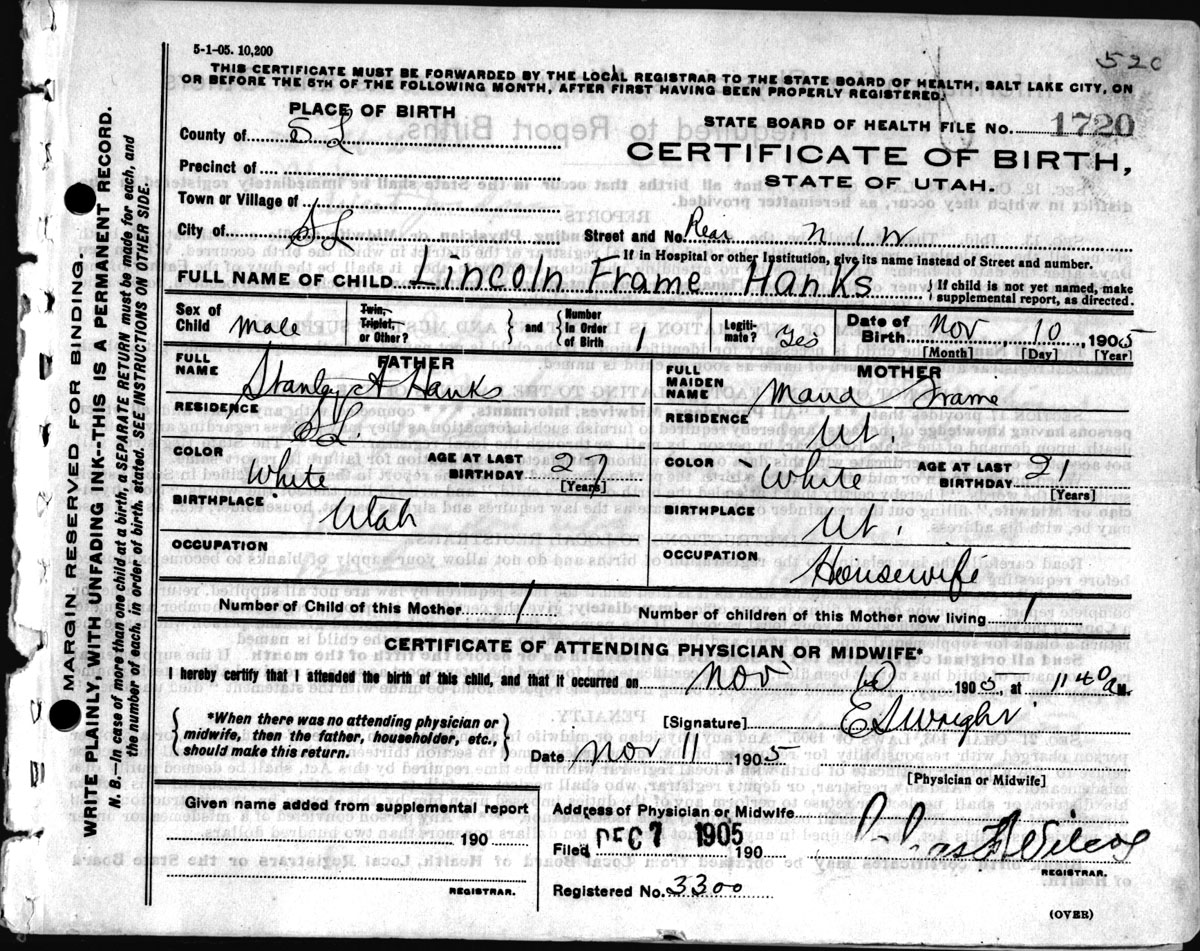 5-1-05. 10,200
520
THIS CERTIFICATE MUST BE FORWARDED BY THE LOCAL REGISTRAR TO THE STATE BOARD OF HEALTH, SALT LAKE CITY, ON
OR BEFORE THE 5TH OF THE FOLLOWING MONTH, AFTER FIRST HAVING BEEN PROPERLY REGISTERED.
PLACE OF BIRTH
STATE BOARD OF HEALTH FILE NO. 1720
County of S L
CERTIFICATE OF BIRTH,
Precinct of
STATE OF UTAH.
Town or Village of
City of S L Street and No. Rear
If in Hospital or other Institution, give its name instead of Street and number.
FULL NAME OF CHILD Lincoln Frame Hanks
If child is not yet named, make supplemental report, as directed.
Sex of Child Male Twin, Triplet, or Other? and Number In Order of Birth 1 Legiti-mate? Yes Date of Birth Nov 10 1905
[Month] [Day] [Year]
FATHER
FULL NAME Stanley A Hanks
RESIDENCE S L.
COLOR White AGE AT LAST BIRTHDAY 27
[Years]
BIRTHPLACE Utah
OCCUPATION
MOTHER
FULL MAIDEN NAME Maud Frame
RESIDENCE Ut.
COLOR White AGE AT LAST BIRTHDAY
[Years]
BIRTHPLACE Ut.
OCCUPATION Housewife
Number of Child of this Mother 1 Number of children of this Mother now living 1
CERTIFICATE OF ATTENDING PHYSICIAN OR MIDWIFE*
I hereby certify that I attended the birth of this child, and that it occurred on Nov 10 1905, at 1140 a M.
*When there was no attending physician or
midwife, then the father, householder, etc.,
should make this return.
[Signature] E S Wright
Date Nov 11 1905
[Physician or Midwife]
Given name added from supplemental report
190
REGISTRAR.
Address of Physician or Midwife
Filed DEC 7 1905 190
REGISTRAR.
Registered No. 3300
(OVER)
MARGIN RESERVED FOR BINDING.
WRITE PLAINLY, WITH UNFADING INK--THIS IS A PERMANENT RECORD.
N. B.—In case of more than one child at a birth, a SEPARATE RETURN must be made for each, and
the number of each, in order of birth, stated. SEE INSTRUCTIONS ON OTHER SIDE.